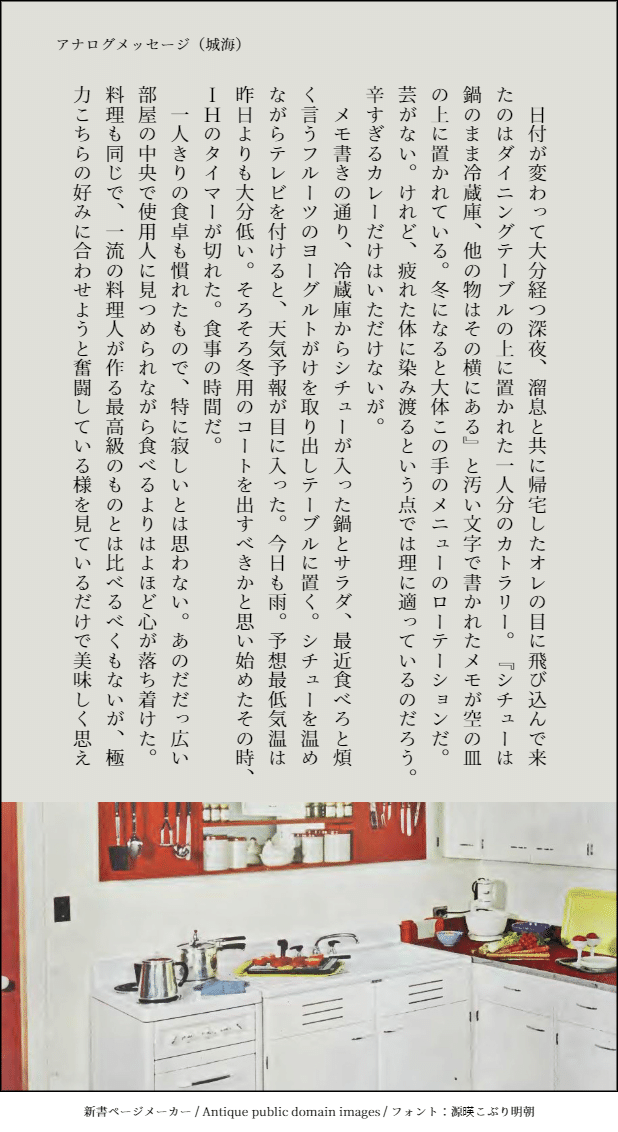 アナログメッセージ（城海）
　日付が変わって大分経つ深夜、溜息と共に帰宅したオレの目に飛び込んで来
たのはダイニングテーブルの上に置かれた一人分のカトラリー。『シチューは
鍋のまま冷蔵庫、他の物はその横にある』と汚い文字で書かれたメモが空の皿
の上に置かれている。冬になると大体この手のメニューのローテーションだ。
芸がない。けれど、疲れた体に染み渡るという点では理に適っているのだろう。
辛すぎるカレーだけはいただけないが。
　メモ書きの通り、冷蔵庫からシチューが入った鍋とサラダ、最近食べろと煩
く言うフルーツのヨーグルトがけを取り出しテーブルに置く。シチューを温め
ながらテレビを付けると、天気予報が目に入った。今日も雨。予想最低気温は
昨日よりも大分低い。そろそろ冬用のコートを出すべきかと思い始めたその時、
ＩＨのタイマーが切れた。食事の時間だ。
　一人きりの食卓も慣れたもので、特に寂しいとは思わない。あのだだっ広い
部屋の中央で使用人に見つめられながら食べるよりはよほど心が落ち着けた。
料理も同じで、一流の料理人が作る最高級のものとは比べるべくもないが、極
力こちらの好みに合わせようと奮闘している様を見ているだけで美味しく思え
新書ページメーカー / Antique public domain images / フォント：源暎こぶり明朝